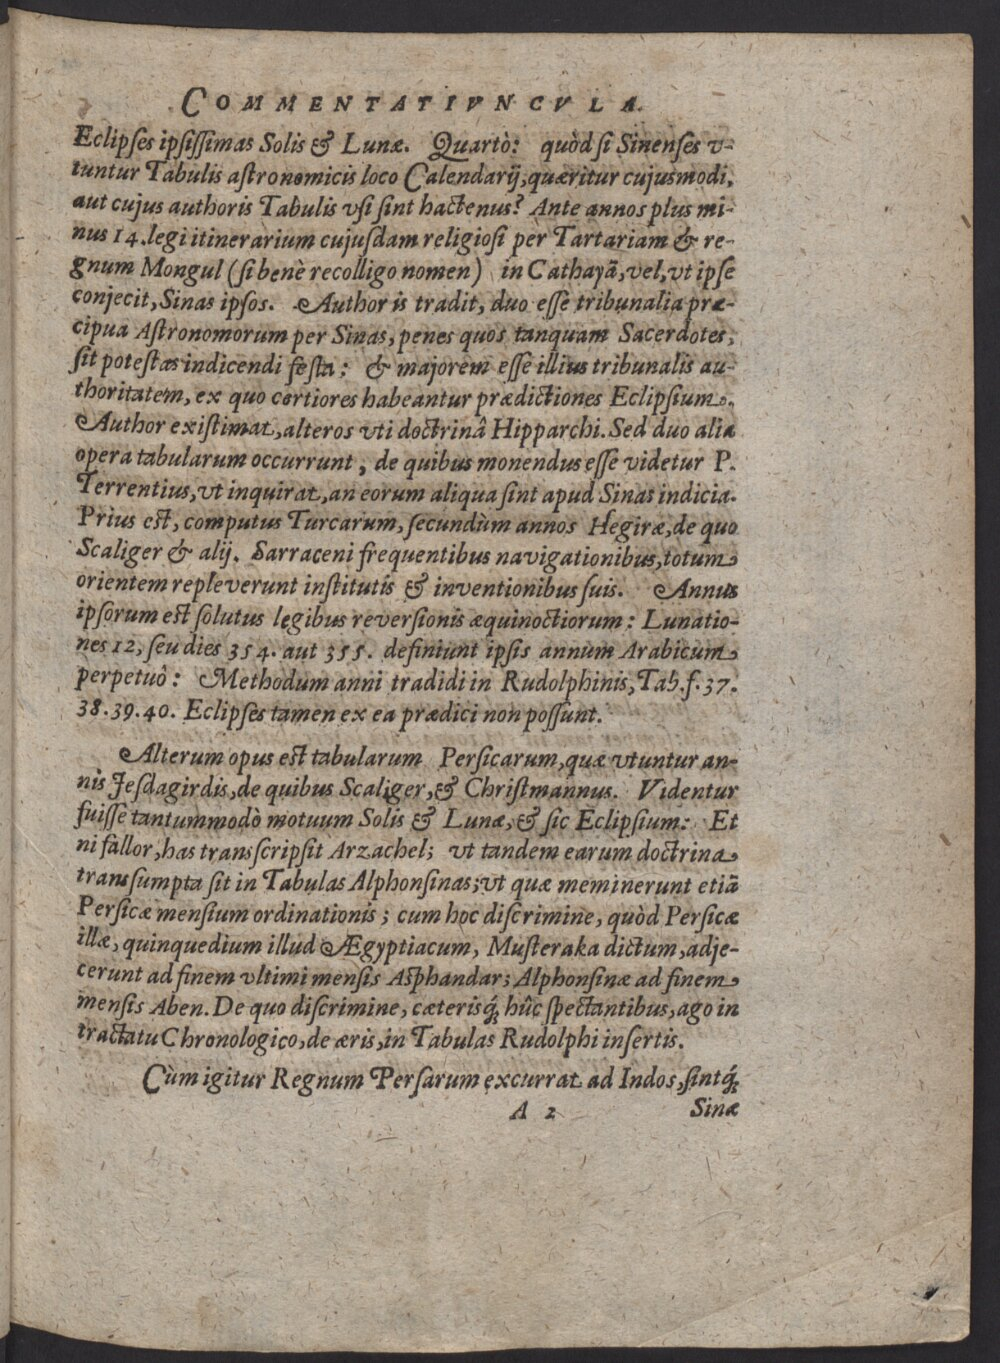 COMMENTATIVNCVLA.
Eclipſes ipſiſſimas Solis & Lunæ. Quartò: quòd ſi Sinenſes v-
tuntur Tabulis aſtronomicis loco Calendarij, quæritur cujusmodi,
aut cujus authoris Tabulis vſi ſint hactenus? Ante annos plus mi-
nus 14. legi itinerarium cujuſdam religioſi per Tartariam & re-
gnum Mongul (ſi benè recolligo nomen) in Cathayã, vel, vt ipſe
conjecit, Sinas ipſos. Author is tradit, duo eſſe tribunalia præ-
cipua Aſtronomorum per Sinas, penes quos tanquam Sacerdotes,
ſit poteſtas indicendi feſta: & majorem eſſe illius tribunalis au-
thoritatem, ex quo certiores habeantur prædictiones Eclipſium.
Author exiſtimat, alteros vti doctrinâ Hipparchi. Sed duo alia
opera tabularum occurrunt, de quibus monendus eſſe videtur P.
Terrentius, vt inquirat, an eorum aliqua ſint apud Sinas indicia.
Prius eſt, computus Turcarum, ſecundùm annos Hegiræ, de quo
Scaliger & alij. Sarraceni frequentibus navigationibus, totum
orientem repleverunt inſtitutis & inventionibus ſuis. Annus
ipſorum eſt ſolutus legibus reverſionis æquinoctiorum: Lunatio-
nes 12, ſeu dies 354. aut 355. definiunt ipſis annum Arabicum
perpetuò: Methodum anni tradidi in Rudolphinis, Tab. f. 37.
38. 39. 40. Eclipſes tamen ex ea prædici non poſſunt.
Alterum opus eſt tabularum Perſicarum, quæ vtuntur an-
nis Jeſdagirdis, de quibus Scaliger, & Chriſtmannus. Videntur
fuiſſe tantummodò motuum Solis & Lunæ, & ſic Eclipſium: Et
ni fallor, has transſcripſit Arzachel; vt tandem earum doctrina
transſumpta ſit in Tabulas Alphonſinas; vt quæ meminerunt etiã
Perſicæ menſium ordinationis; cum hoc diſcrimine, quòd Perſicæ
illæ, quinquedium illud Ægyptiacum, Muſteraka dictum, adje-
cerunt ad finem vltimi menſis Aſphandar; Alphonſinæ ad finem
menſis Aben. De quo diſcrimine, cæterisq́; hûc ſpectantibus, ago in
tractatu Chronologico, de æris, in Tabulas Rudolphi inſertis.
Cùm igitur Regnum Perſarum excurrat ad Indos, ſintq́;
A 2 Sinæ